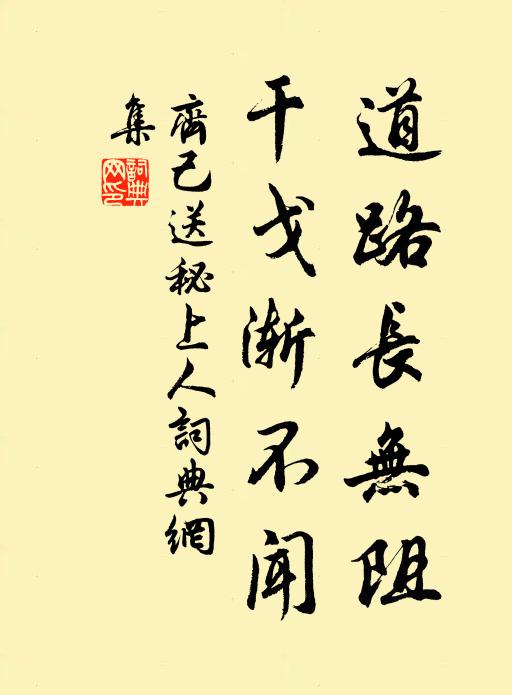 道路長無阻
干戈漸不聞
齊己送秘上人詞典網
集
詞典網印